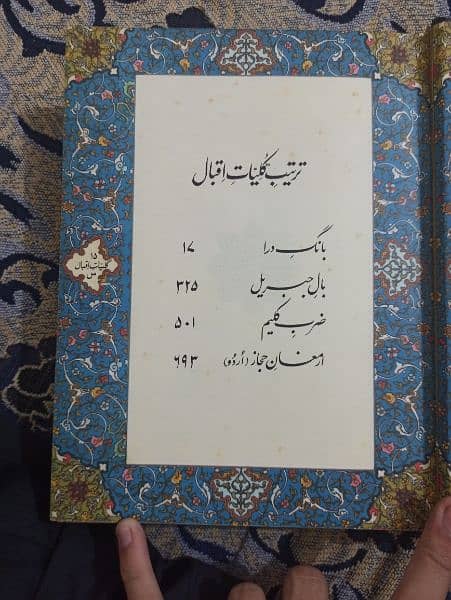 ترتیبِ کلیاتِ اقبال
بانگِ درا ۱۷
بالِ جبریل ۳۲۵
ضربِ کلیم ۵۰۱
ارمغانِ حجاز (اُردُو) ۶۹۳
۱۵
کلیاتِ اقبال